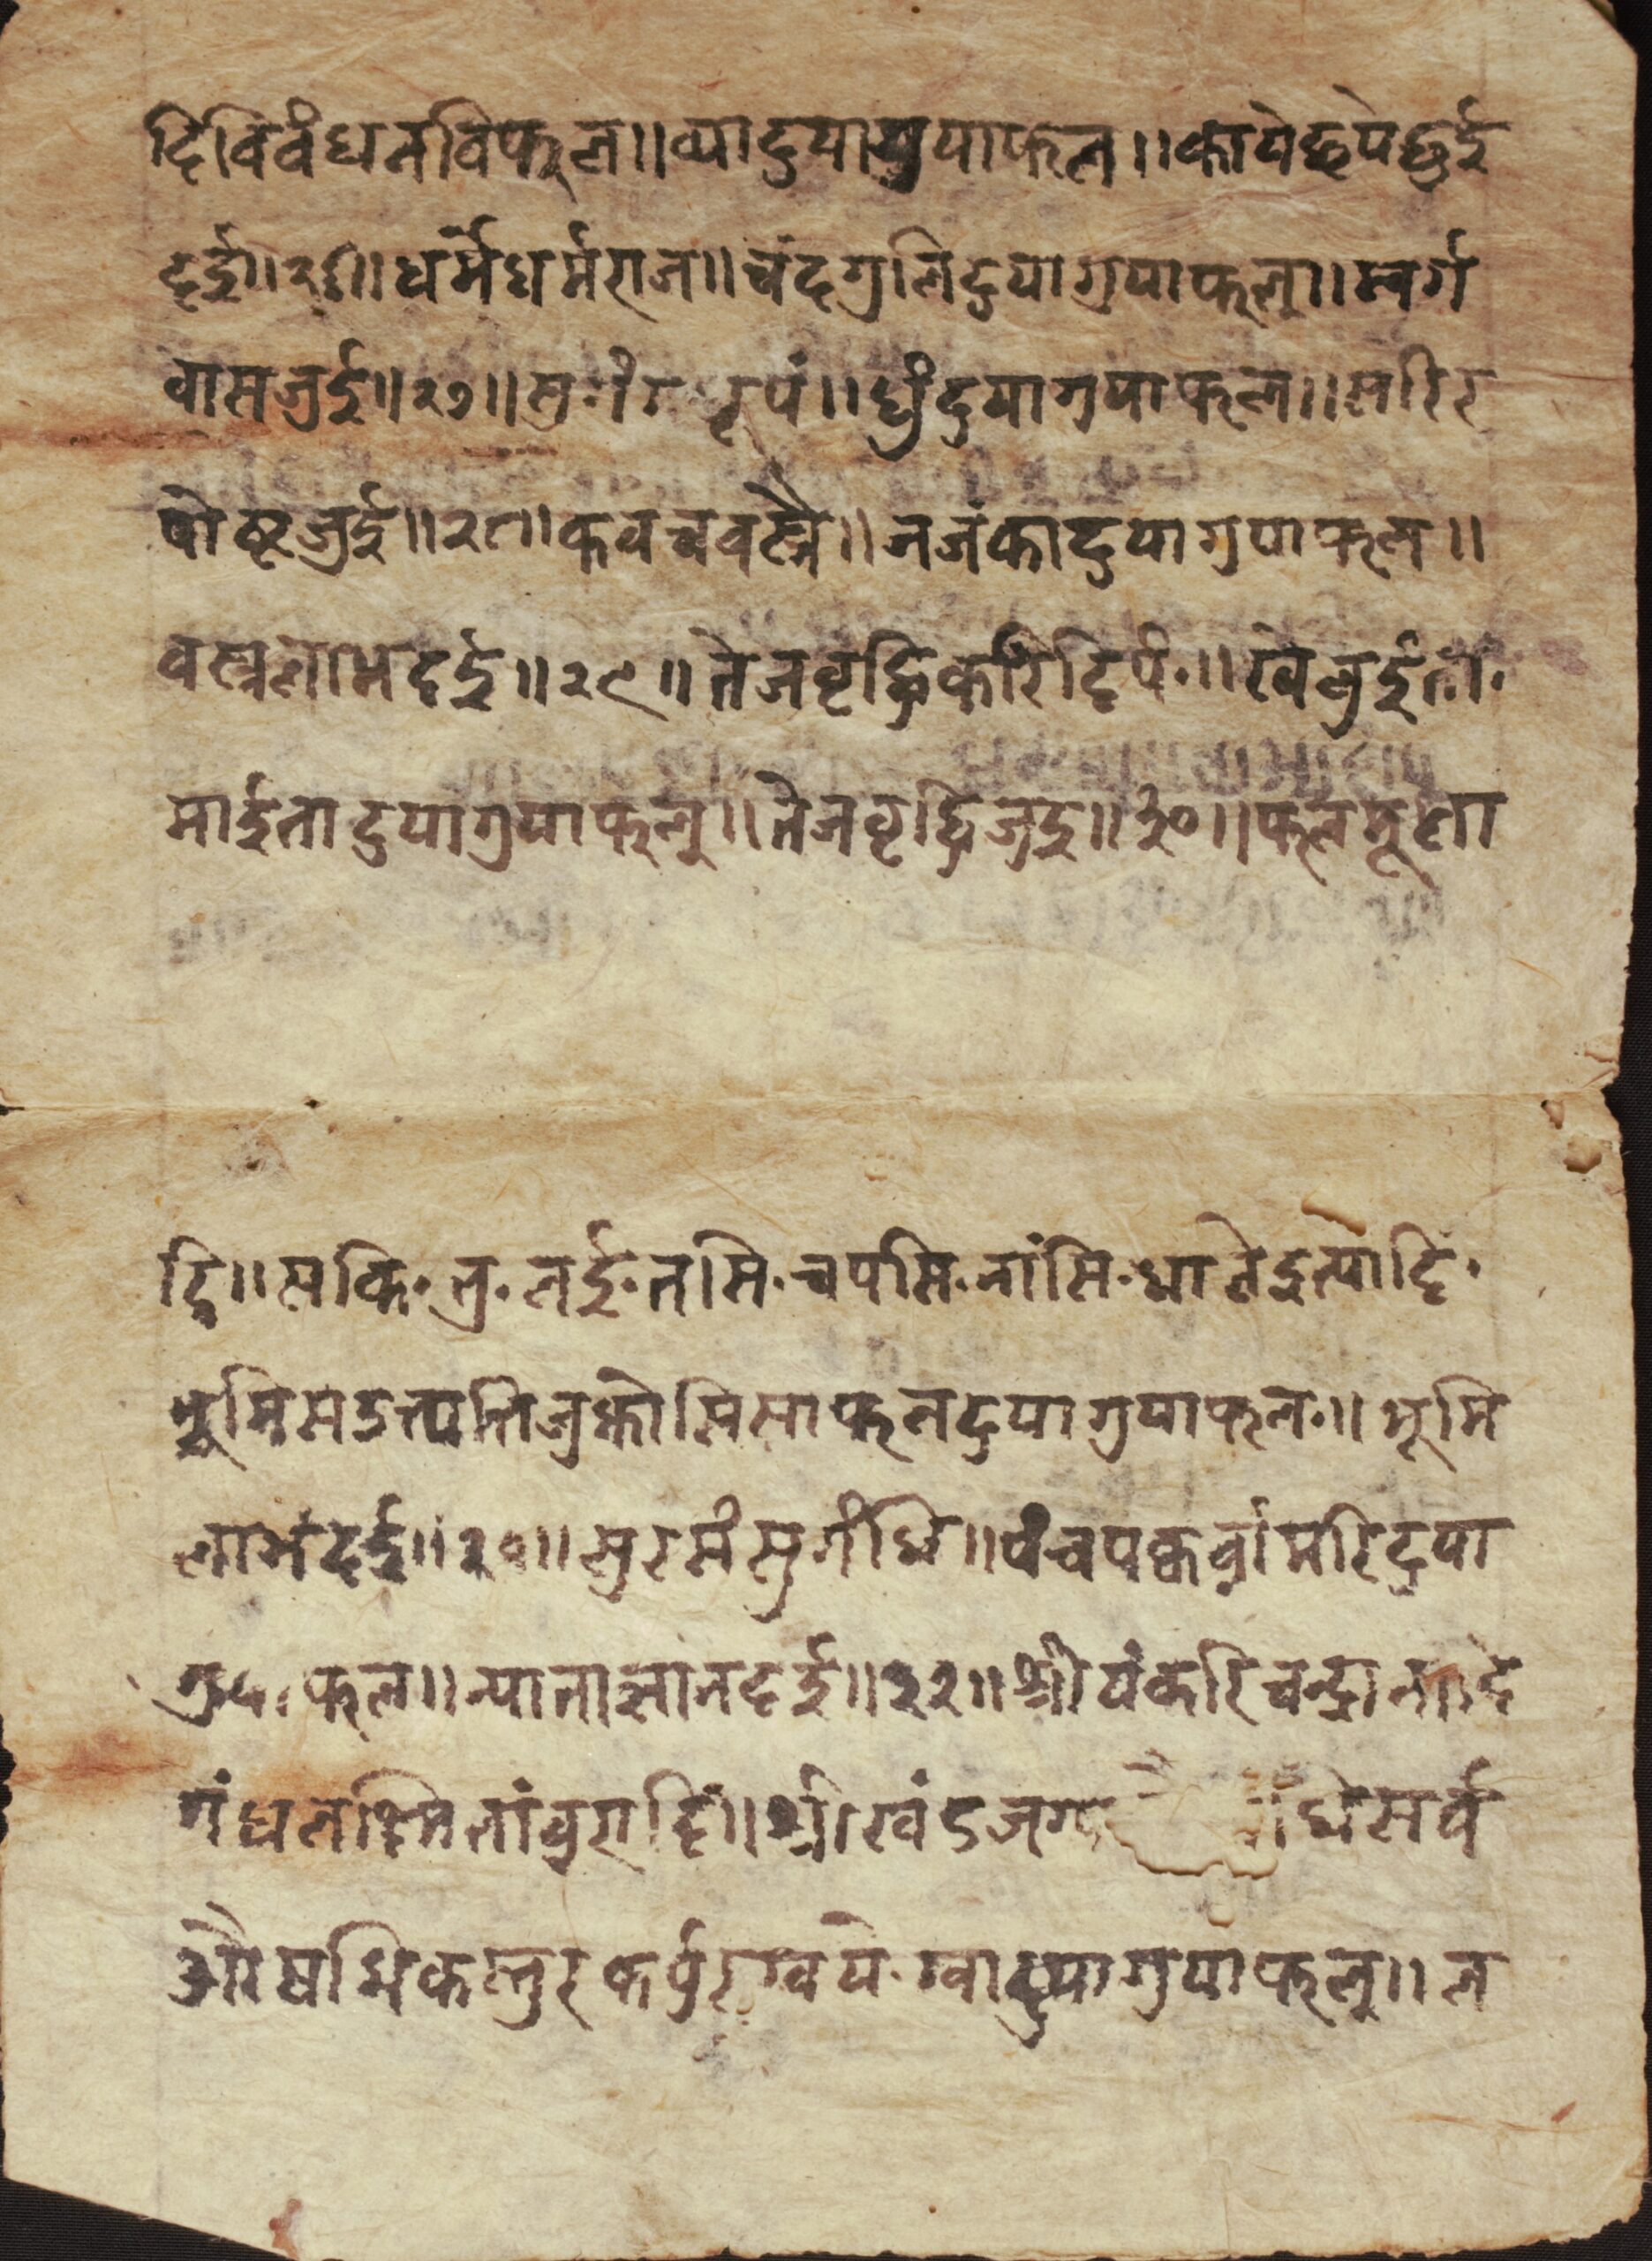 दिविवंधनविफल॥व्यादुयागुयाफल॥कायेछपेछुई
दई॥२६॥धर्मेधर्मराज॥चंदगुलिदुयागुयाफल॥स्वर्ग
वासजुई॥२७॥सुगंध धूपं॥धुंदुयागुयाफल॥सरिर
पोष्टजुई॥२८॥कवचवस्त्रै॥जजंकादुयागुयाफल॥
वस्त्रलाभदई॥२९॥तेजवृद्धिकरिदिपं॥खेलुईता·
माईतादुयागुयाफल॥तेजवृद्धिजुइ॥३०॥फलमूला
दि॥सकि·तु·लई·तसि·चपसि·नांसि·धालेइत्यादि·
भूमिसउत्पत्तिजुकोसिसाफलदुयागुयाफल॥भूमि
लाभंदई॥३१॥सुरसंसुगंधि॥पंचपक्वर्वामरिदुया
गुयाफल॥न्यानाज्ञानदई॥३२॥श्रीयंकरिचन्द्रानादे
गंधलक्ष्मितांवुरादिं॥श्रीखंड धिसर्व
औषधिकस्तुरकर्पुरग्वये·ग्वादुयागुयाफल॥ल